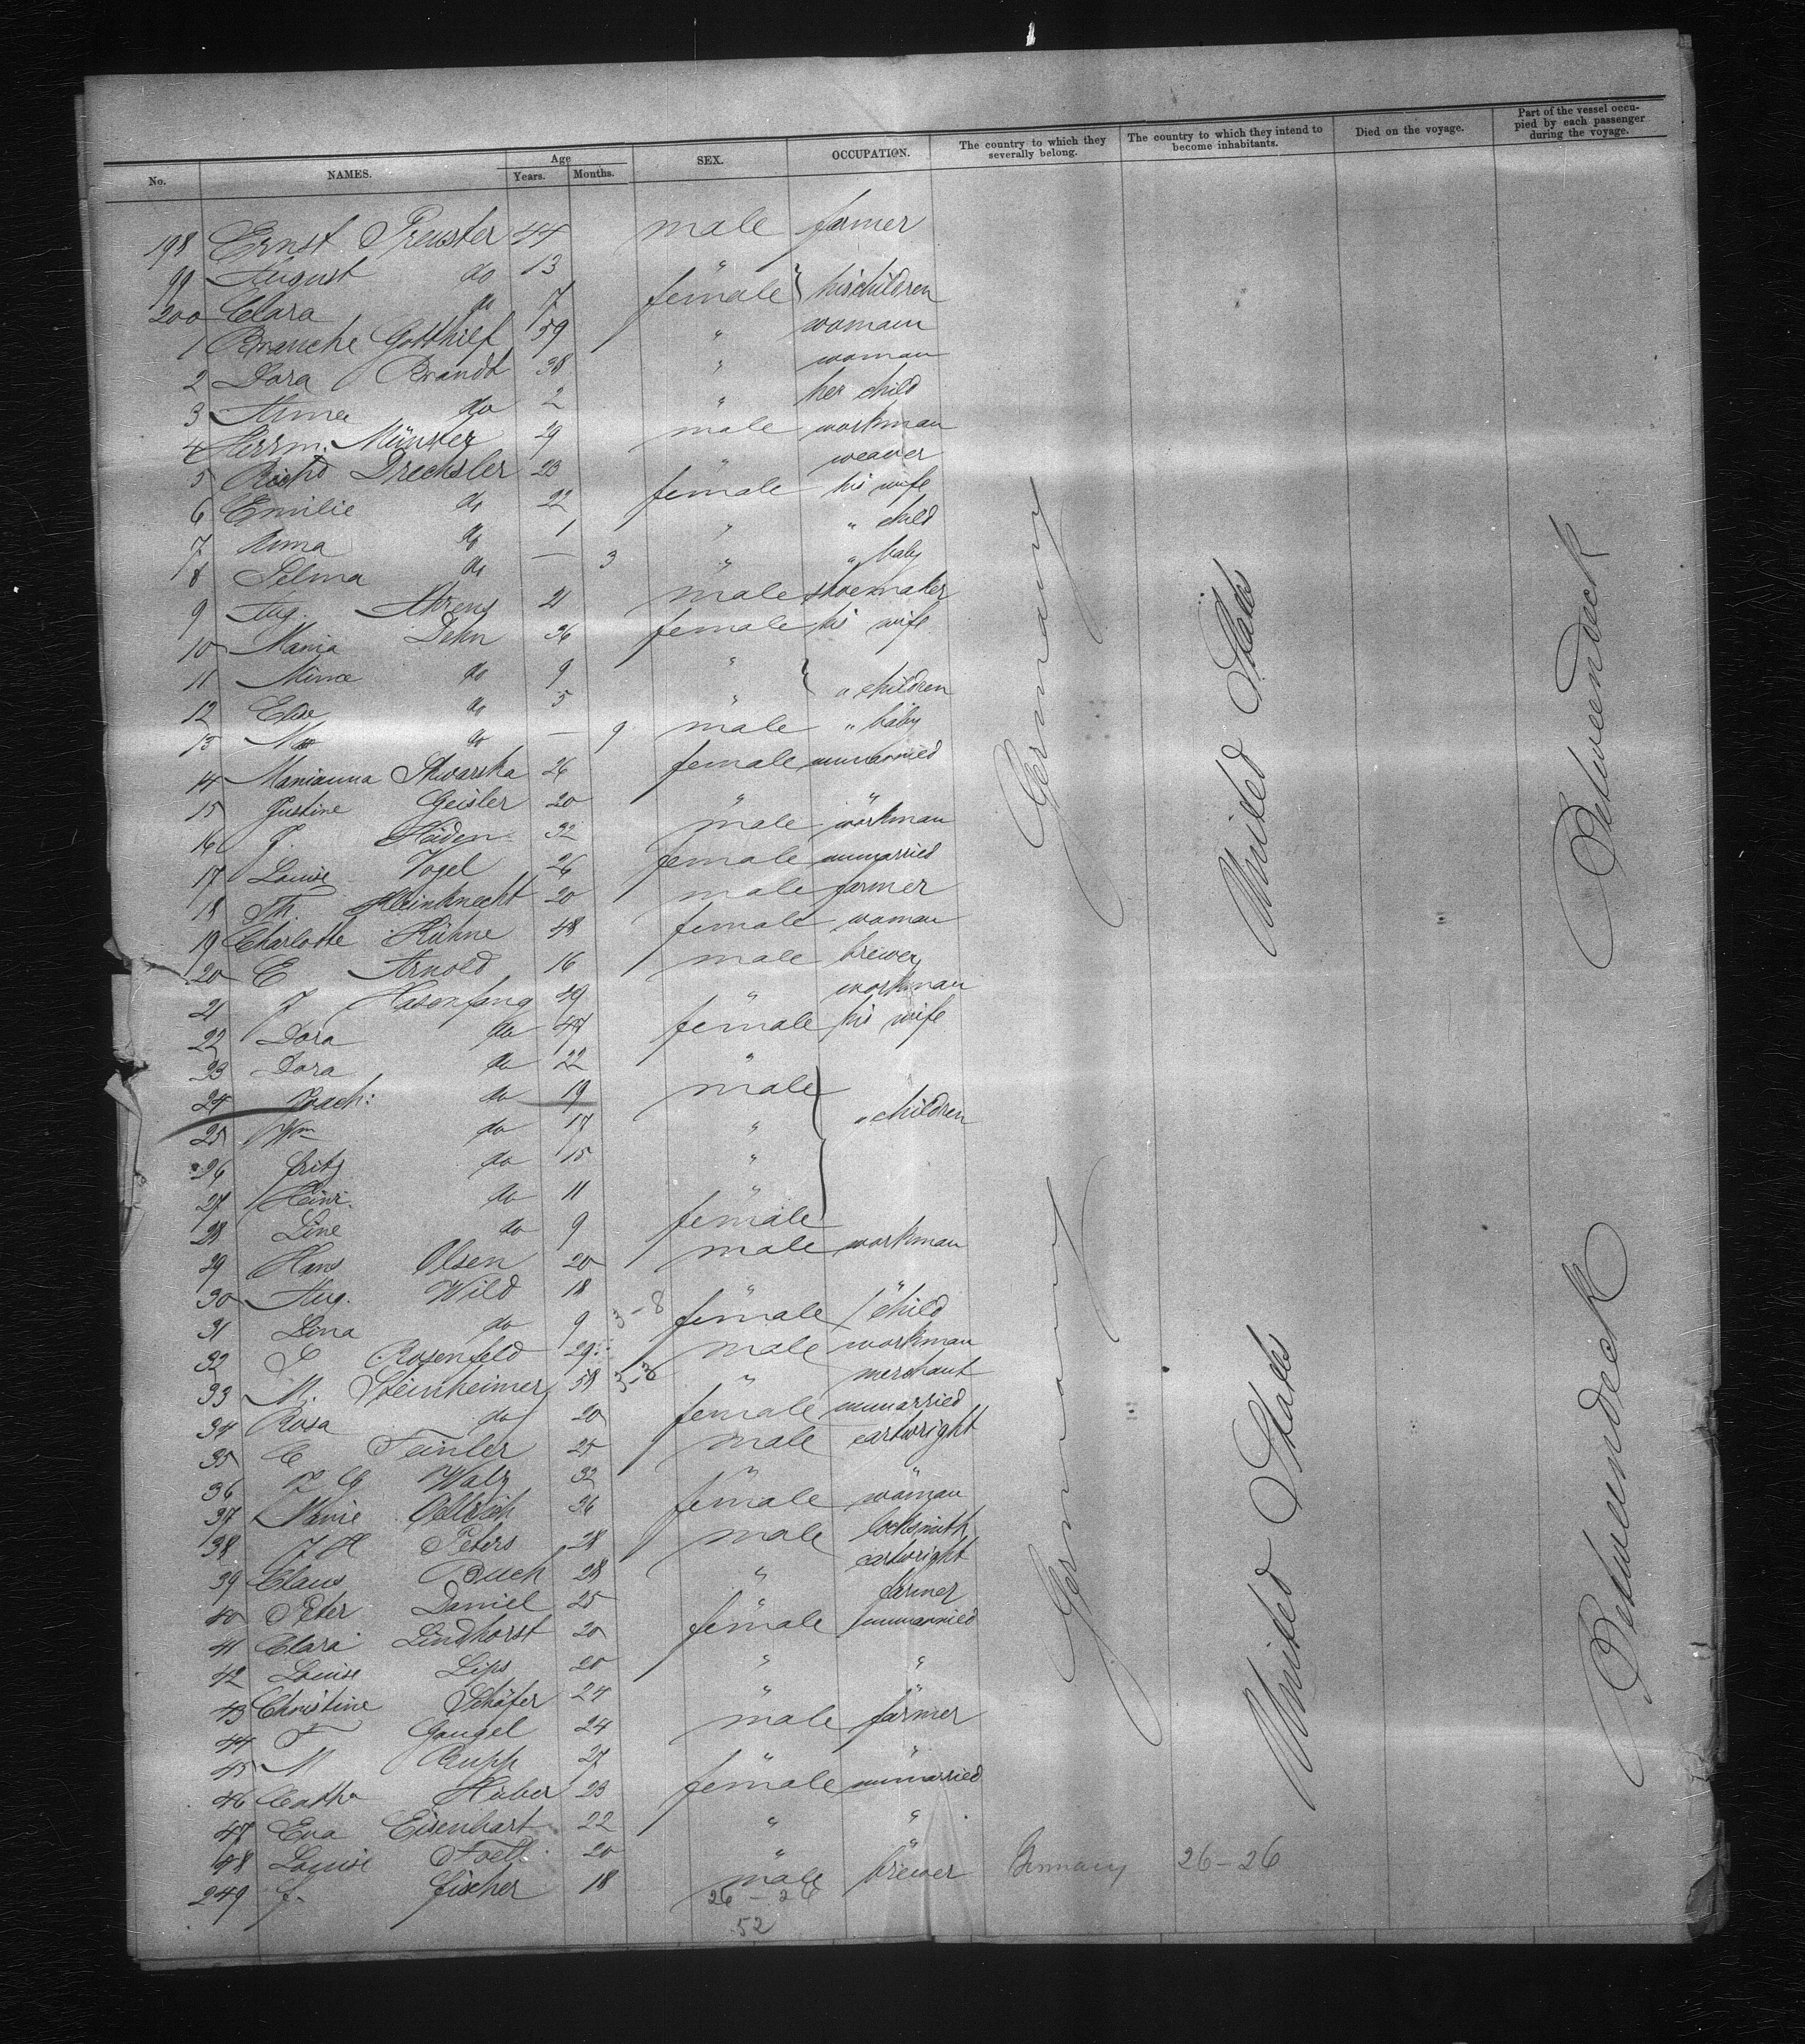 No. NAMES. Age Years. Months. SEX. OCCUPATION. The country to which they severally belong. The country to which they intend to become inhabitants. Died on the voyage. Part of the vessel occupied by each passenger during the voyage.
198 Ernst Preuster 44 male farmer
99 August do 13 "
200 Clara do 7 female } his children
1 Gotthief 59 " womann
2 Dora Brandt 38 " woman
3 do 2 " her child
4 Herrm. Münster 29 male workman
5 Richd Drechsler 23 " weaver
6 Emilie do 22 female his wife
7 Anna do 1 " " child
8 Selma do — 3 " " baby
9 Aug. Ahrens 21 male shoemaker
10 Maria Dehn 36 female his wife
11 do 9 "
12 Elise do 5 " } " children
13 do — 9 male " baby
14 Marianna 26 female unmarried
15 Justine Geisler 20 " "
16 J. Häden 32 male workman
17 Louise Vogel 26 female unmarried
18 Th. Kleinknecht 20 male farmer
19 Charlotte Kühne 48 female woman
20 E Arnold 16 male brewer
21 J Hasenfang 49 " workman
22 Dora do 47 female his wife
23 Dora do 22 "
24 Joach: do 19 male
25 Wm do 17 " " children
26 Fritz do 15 "
27 Heinr. do 11 "
28 Line do 9 female
29 Hans Olsen 20 male workman
30 Aug. Wild 18 " "
31 Lina do 9 3-8 female child
32 S Rosenfeld 29 male workman
33 M. Steinheimer 58 " merchant
34 Rosa do 20 female unmarried
35 C Feinler 25 male cartwright
36 Walz 32 " "
37 Marie 36 female woman
38 J H Peters 28 male locksmith
39 Claus Buch 28 " cartwright
40 Peter Daniel 25 " farmer
41 Clara Lindhorst 20 female unmarried
42 Louise Lips 20 " "
43 Christine Schäfer 24 " "
44 F Gaugel 24 male farmer
45 M Rupp 27 " "
46 Cath. Huber 23 female unmarried
47 Eva Eisenhart 22 " "
48 Louise 20 " "
249 J. Fischer 18 male brewer Germany 26-26
26-26
52
Germany
United States
Betweendeck
Germany
United States
Betweendeck